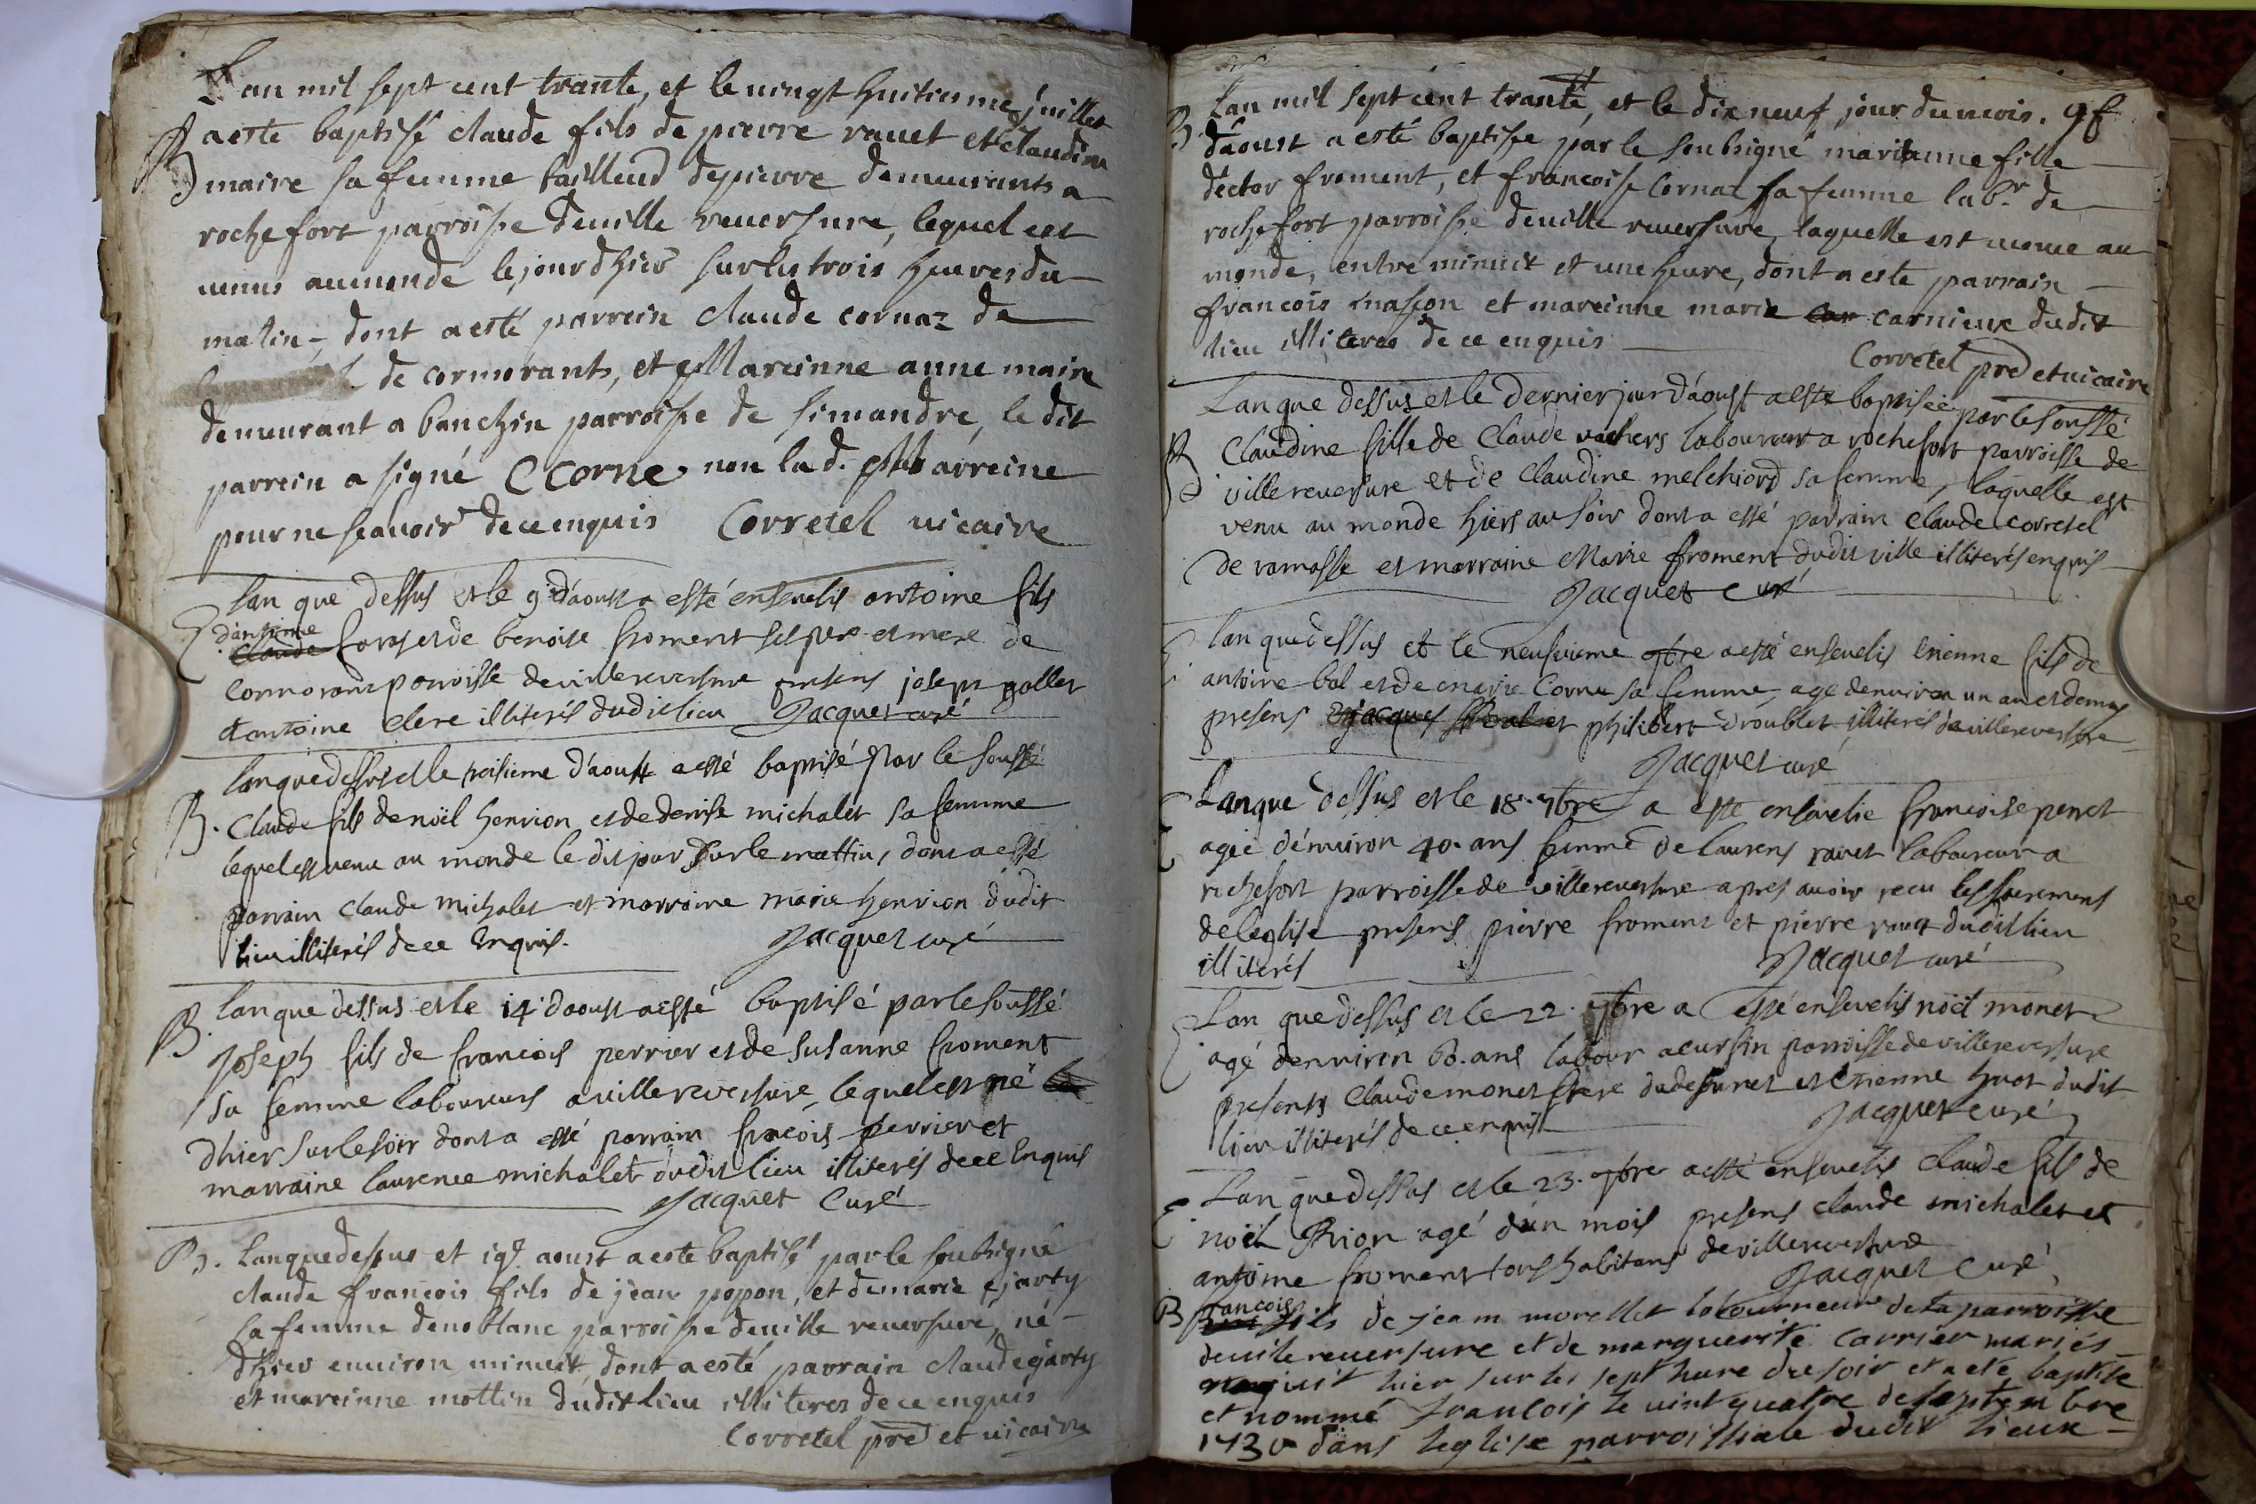 Lan mil sept cent trante, et le vingt huitieme juillet
B aeste baptisé claude fils de pierre ravet et claudine
maire sa femme tailleur depierre demeurants a
rochefort parroisse deville reversure, lequel est
venus aumonde lejourdhier surles trois heures du
matin, dont aesté parrein claude cornaz de
de cormorants, et Mareinne anne maire
demeurant a banchin parroisse de simandre, le dit
parrein a signé C Corne non lad. marreine
pour ne scavoir dece enquis Corretel vicaire
lan que dessus et le 9e daoust a esté ensevelis antoine fils
E dantoine
Claude et de benoite froment ses pere et mere de
Cormorant parroisse devillereversure presens joseph gallet
et antoine clere illiterés dudit lieu Jacquet curé
lan que dessus et le d'aoust a esté baptisé par le soussé
B. Claude fils de noël henrion et de denise michalet sa femme
lequel est venu au monde le dit jour sur le mattin, dont a esté
parrain claude michalet et marraine marie henrion dudit
lieu illiterés de ce Enquis. Jacquet curé
B. lan que dessus et le 14e daoust a esté baptisé par le soussé
Joseph fils de francois perrier et de susanne froment
sa femme laboureurs a villereversure, lequel est né
dhier sur le soir dont a esté parrain fracois perrier et
marraine laurence michalet dudit lieu illiterés dece Enquis
Jacquet Curé
B. Lanquedessus et 19e aoust a este baptisé par le soubsigné
claude francois fils de jean popon, et demarie ejarty
sa femme denoblanc parroisse deville reversure, né
dhier environ minuit, dont a esté parrain claude ejarty
et mareinne mottin dudit lieu illiteres de ce enquis
Corretel pre et vicaire
Lan mil sept cent trante, et le dix neuf jour du mois. 9f
B. daoust a esté baptisée par le soubsigné marianne fille
déctor froment, et francoise Cornaz sa femme labr. de
rochefort parroisse deville reversure, laquelle est venue au
monde, entre minuit et une heure, dont a este parrain
francois masson et mareinne marie car carnieux dudit
lieu illiteres de ce enquis
Corretel pre et vicaire
Lan que dessus et le dernier jour d'aoust a esté baptisée par le soussé
B Claudine fille de Claude vachers laboureur a rochefort parroisse de
villereversure et de Claudine melchiord sa femme, laquelle est
venu au monde hiers au soir dont a esté parrain claude corretel
de ramasse et marraine Marie froment dudit ville illiterés enquis
Jacquet curé
E lan que dessus et le neufvieme 9bre a esté ensevelis Etienne fils de
antoine bal et de marie Corne sa femme, agé denviron un an et demy
presens et philibert droublet illiterés de villereversure
Jacquet curé
E Lan que dessus et le 18e. 7bre a esté ensevelie francoise perret
agée d'environ 40. ans femme de laurens ravet laboureur a
rochefort parroisse de villereversure apres avoir recu les sacremens
de leglise presens pierre froment et pierre ravet dudit lieu
illiterés Jacquet curé
E Lan que dessus et le 22. 7bre a esté ensevelis noël monet
agé denviron 60. ans labour a cursin parroisse de villereversure
presents Claude monet frere du defunet et Etienne huot dudit
lieu illiterés de ce enquis Jacquet Curé
E Lan que dessus et le 23. 7bre a esté ensevelis claude fils de
noël Rion agé d'un mois presens claude michalet et
antoine froment tous habitans de villereversure
Jacquet Curé
B francois
fils de jeam morellet labourneure de la parroisse
deville reversure et de marguerite carrier mariés
naquit hier sur les sept hure du soir et a eté baptise
et nommé francois le vint quatre de septembre
1730 dans leglise parroissiale dudit lieux